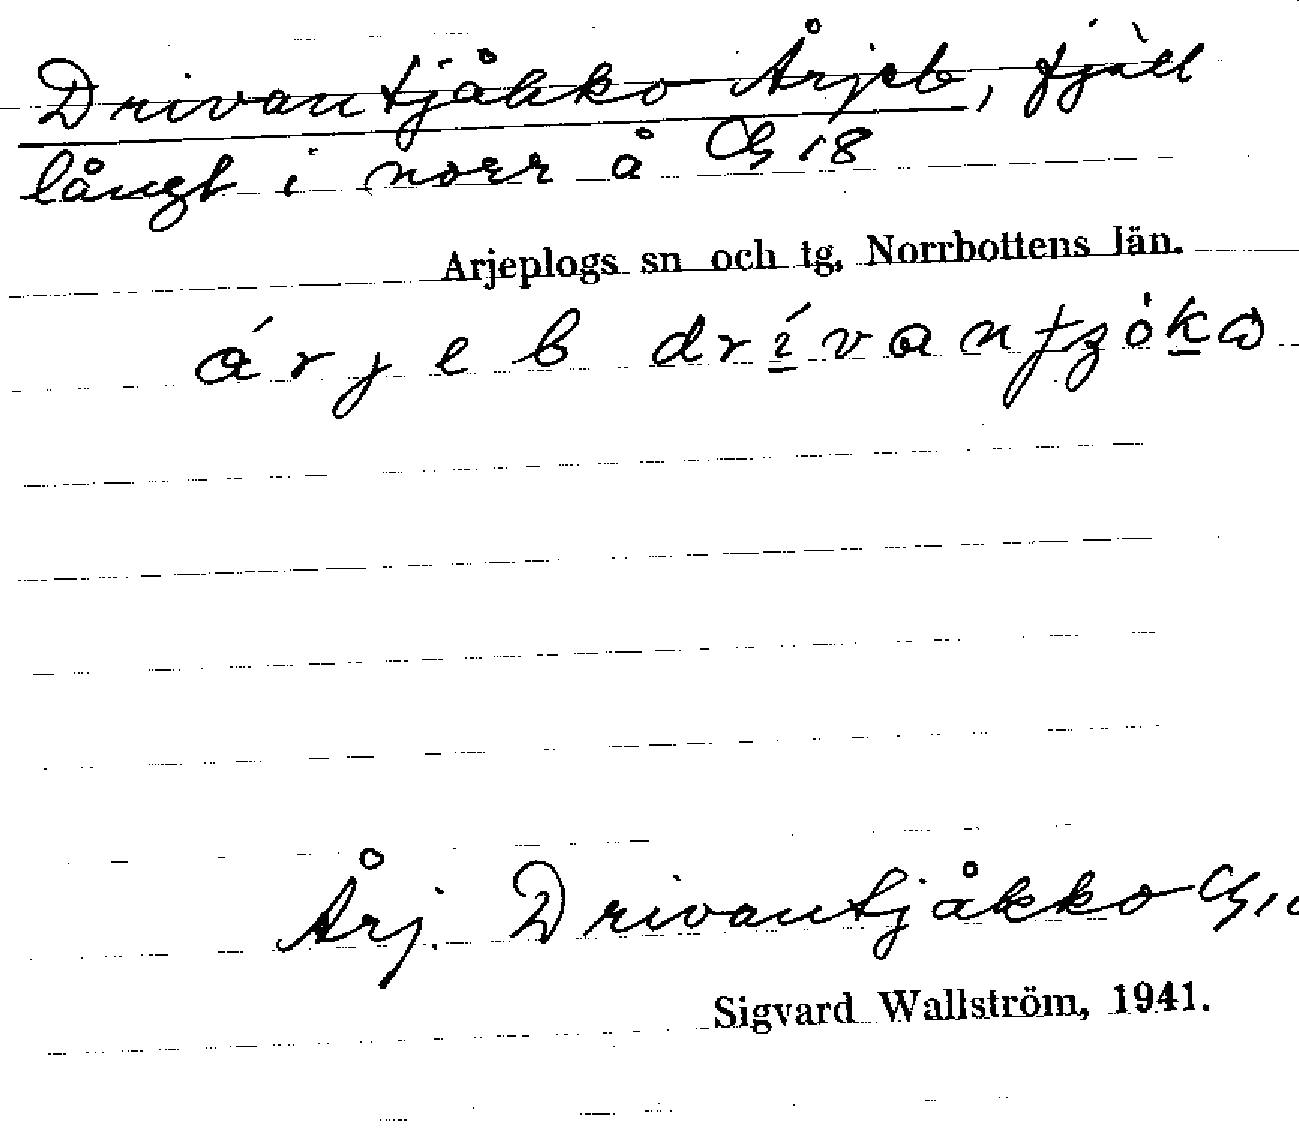 Drivantjåkko Årjeb, fjäll
långt i norr å Gb 18
Arjeplogs sn och tg, Norrbottens län.
árjeb drívantzȯkɷ
Årj. Drivantjåkko
Sigvard Wallström, 1941.